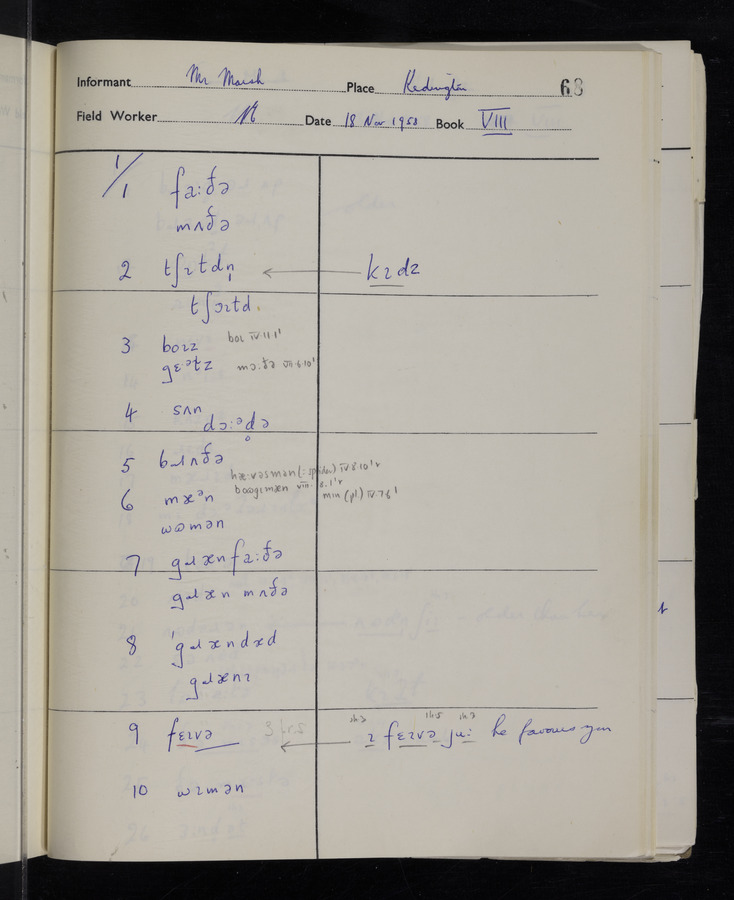 Informant Mr Marsh Place Kedington 68
Field Worker Date 18 Nov 1958 Book VIII
1/1 fa:ðə
mʌðə
2 tʃɪtdn̩ ← kɪdz
tʃɔɪtd
3 boɪz boɪ IV.11.1'
gɛ·ətz mɔ.ðə VII.6.10'
4 sʌn
dɔ:əd̥ə
5 bɹʌðə
hæ:vəsmən (: spider) IV.8.10'r
6 mæᵊn boogɪmæn VIII.8.1'r
min (pl) IV 7 6'
wɷmən
7 gɹænfa:ðə
gɹæn mʌðə
8 'gɹændæd
gɹænɪ
9 fɛɪvə 3 f.r.s ← ɪ fɛɪvə ju: he favours you
10 wɪmən